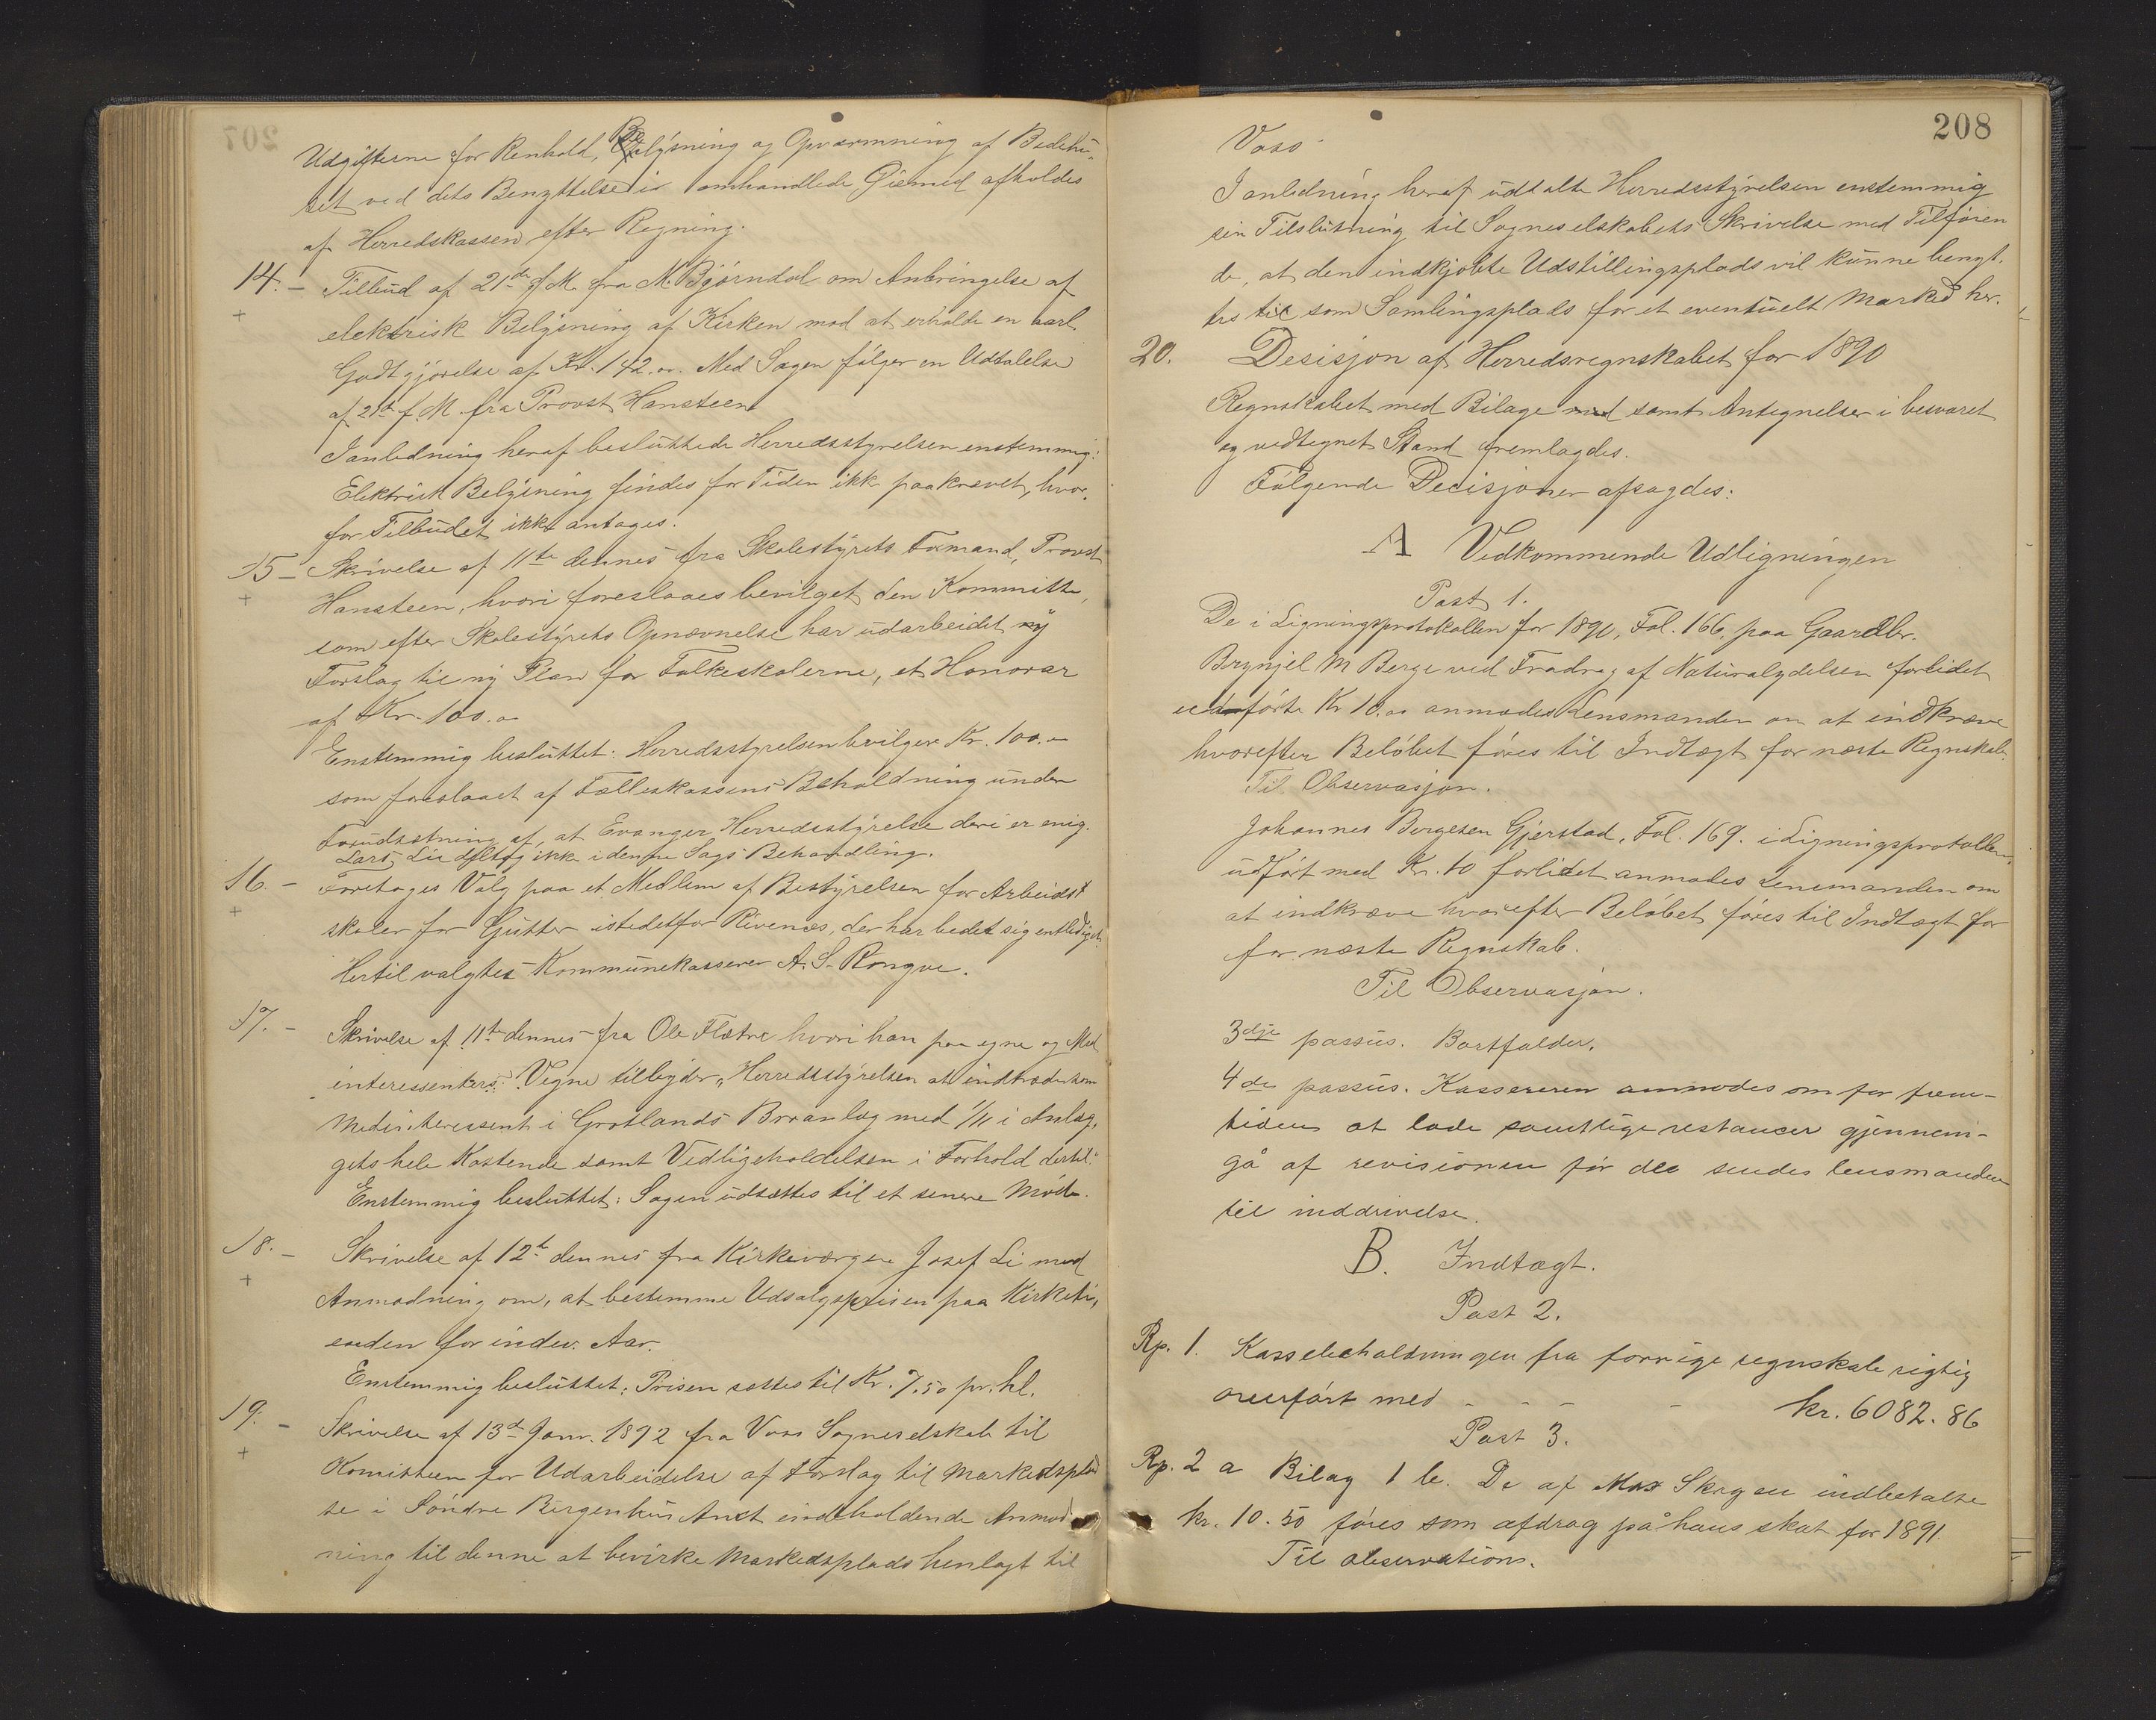 Udgifterne for Renhold, Belysning og Opvarmning af Bedehu-
set ved dets Benyttelse i omhandlede Øiemed afholdes
af Herredskassen efter Regning.
14. – Tilbud af 21de f. M. fra M. Bjørndal om Anbringelse af
+ elektrisk Belysning af Kirken mod at erholde en aarl.
Godtgjørelse af Kr. 142.00. Med Sagen følger en Udtalelse
af 21de f. M. fra Provst Hansteen
I anledning heraf besluttede Herredsstyrelsen enstemmig:
Elektrisk Belysning findes for Tiden ikke paakrævet, hvor-
for Tilbudet ikke antages.
15 – Skrivelse af 11te dennes fra Skolestyrets Formand, Provst
+ Hansteen, hvori foreslaaes bevilget den Kommitte,
som efter Skolestyrets Opnævnelse har udarbeidet ny
Forslag til ny Plan for Folkeskolerne, et Honorar
af Kr. 100.00
Enstemmig besluttet: Herredsstyrelsen bevilger Kr. 100.00
som foreslaaet af Fælleskassens Beholdning under
Forudsætning af, at Evanger Herredsstyrelse deri er enig.
Lars Lie deltog ikke i denne Sags Behandling.
16. – Foretages Valg paa et Medlem af Bestyrelsen for Arbeids-
+ skoler for Gutter istedetfor Rivenæs, der har bedet sig entlediget.
Hertil valgtes Kommunekasserer A. S. Rongve.
17. – Skrivelse af 11te dennes fra Ole Flatre hvori han paa egne og Med
interessenters Vegne tilbyder „Herredsstyrelsen at indtræde som
Medinteressent i Grotlands Broanlæg med 1/11 i Anlæg-
gets hele Kostende samt Vedligeholdelsen i Forhold dertil."
Enstemmig besluttet: Sagen udsættes til et senere Møde.
18. – Skrivelse af 12te dennes fra Kirkeværgen Josef Li med
+ Anmodning om, at bestemme Udsalgsprisen paa Kirketi-
enden for indev. Aar.
Enstemmig besluttet: Prisen sættes til Kr. 7.50 pr. hl.
19. – Skrivelse af 13de Janr. 1892 fra Voss Sogneselskab til
+ Komiteen for Udarbeidelse af Forslag til Markedsplad
se i Søndre Bergenhus Amt indeholdende Anmod
ning til denne at bevirke Markedsplads henlagt til
208
Voss
I anledning heraf udtalte Herredsstyrelsen enstemmig
sin Tilslutning til Sogneselskabets Skrivelse med Tilføien
de, at den indkjøbte Udstillingsplads vil kunne benyt-
tes til som Samlingsplads for et eventuelt Marked her.
20. Desisjon af Herredsregnskabet for 1890
Regnskabet med Bilage med samt Antegnelser i besvaret
og vedtegnet Stand fremlagdes.
Følgende Decisjoner afsagdes:
A Vedkommende Udligningen
Post 1.
De i Ligningsprotokollen for 1890, Fol. 166, paa Gaardbr.
Brynjel M Berge ved Fradrag af Naturalydelsen forlidet
udførte Kr 10.00 anmodes Lensmanden om at indkræve
hvorefter Beløbet føres til Indtægt for næste Regnskab.
Til Observasjon.
Johannes Bergesen Gjerstad, Fol. 169. i Ligningsprotollen,
udført med Kr. 10 forlidet anmodes Lensmanden om
at indkræve hvorefter Beløbet føres til Indtægt for
for næste Regnskab.
Til Observasjon.
3dje passus. Bortfalder.
4de passus. Kassereren anmodes om for frem-
tiden at lade samtlige restancer gjennem-
gå af revisionen før de sendes lensmanden
til inddrivelse.
B. Indtægt.
Post 2.
Rp. 1. Kassebeholdningen fra forrige regnskab rigtig
overført med - - - - kr. 6082.86
Post 3.
Rp. 2 a Bilag 1 b. De af Max Skrgen indbetalte
kr. 10.50 føres som afdrag på hans skat for 1891.
Til observation.